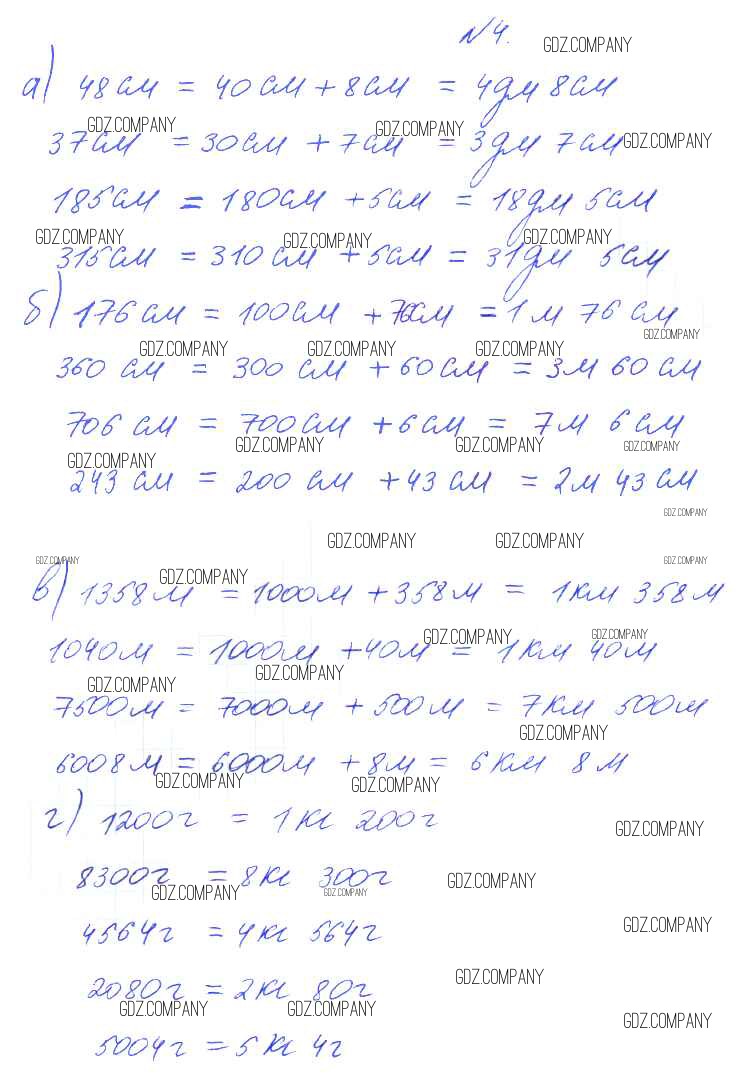 №4.
GDZ.COMPANY
а) 48 см = 40 см + 8 см = 4 дм 8 см
GDZ.COMPANY GDZ.COMPANY GDZ.COMPANY
37 см = 30 см + 7 см = 3 дм 7 см
185 см = 180 см + 5 см = 18 дм 5 см
GDZ.COMPANY GDZ.COMPANY GDZ.COMPANY
315 см = 310 см + 5 см = 31 дм 5 см
б) 176 см = 100 см + 76 см = 1 м 76 см
GDZ.COMPANY
GDZ.COMPANY GDZ.COMPANY GDZ.COMPANY
360 см = 300 см + 60 см = 3 м 60 см
706 см = 700 см + 6 см = 7 м 6 см
GDZ.COMPANY GDZ.COMPANY GDZ.COMPANY
GDZ.COMPANY
243 см = 200 см + 43 см = 2 м 43 см
GDZ.COMPANY
GDZ.COMPANY GDZ.COMPANY
GDZ.COMPANY GDZ.COMPANY
GDZ.COMPANY
в) 1358 м = 1000 м + 358 м = 1 км 358 м
GDZ.COMPANY GDZ.COMPANY
1040 м = 1000 м + 40 м = 1 км 40 м
GDZ.COMPANY GDZ.COMPANY
7500 м = 7000 м + 500 м = 7 км 500 м
GDZ.COMPANY
6008 м = 6000 м + 8 м = 6 км 8 м
GDZ.COMPANY GDZ.COMPANY
г) 1200 г = 1 кг 200 г
GDZ.COMPANY
8300 г = 8 кг 300 г
GDZ.COMPANY
GDZ.COMPANY GDZ.COMPANY
GDZ.COMPANY
4564 г = 4 кг 564 г
GDZ.COMPANY
2080 г = 2 кг 80 г
GDZ.COMPANY GDZ.COMPANY
GDZ.COMPANY
5004 г = 5 кг 4 г